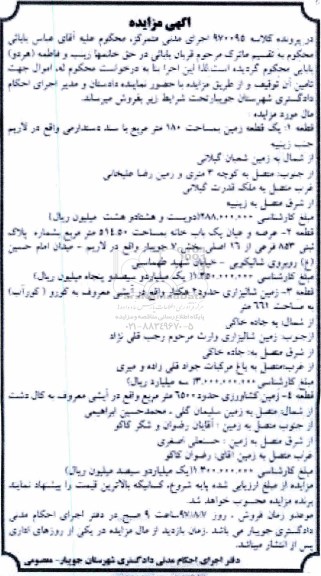 آگهی مزایده
در پرونده کلاسه ۹۷۰۰۹۵ اجرای مدنی متمرکز، محکوم علیه آقای عباس بابائی
محکوم به تقسیم ماترک مرحوم قربان بابائی در حق خانمها زینب و فاطمه (هردو)
بابایی محکوم گردیده است.لذا این اجرا بنا به درخواست محکوم له، اموال جهت
تامین آن توقیف و از طریق مزایده با حضور نماینده دادستان و مدیر اجرای احکام
دادگستری شهرستان جویبارتحت شرایط زیر بفروش میرساند.
قطعه ۱: یک قطعه زمین بمساحت ۱۸۰ متر مربع با سند دستدارمی واقع در لاریم
جنب زینبیه
از شمال به زمین شعبان گیلانی
از جنوب: متصل به کوچه ۳ متری و زمین رضا علیخانی
غرب متصل به ملک قدرت گیلانی
از شرق متصل به زینبیه
مبلغ کارشناسی ۲۸۸,۰۰۰,۰۰۰(دویست و هشتادر هشت میلیون ریال)
قطعه ۲- عرصه و اعیان یک باب خانه بمساحت ۵۱۴.۵۰ متر مربع بشماره پلاک
ثبتی ۸۵۳ فرعی از ۱۶ اصلی بخش ۷ جویبار واقع در لاریم - میدان امام حسین
(ع) روبروی شالیکوبی - خیابان شهید طهماسبی
مبلغ کارشناسی ۱,۳۵۰,۰۰۰,۰۰۰( یک میلیاردو سیصدو پنجاه میلیون ریال)
قطعه ۳- زمین شالیزاری حدود۲ هکتار واقع در آیشی معروف به کورو ( کورآب)
به مساحت ۶۶۱ متر
از شمال: به جاده خاکی
ازجنوب: زمین شالیزاری وارث مرحوم رجب قلی نژاد
از شرق متصل به: جاده خاکی
ازغرب:متصل به باغ مرکبات جواد قلی زاده و میری
مبلغ کارشناسی ۳,۰۰۰,۰۰۰,۰۰۰( سه میلیارد ریال)
قطعه ۴- زمین کشاورزی حدود ۶۵۰۰ متر مربع واقع در آیشی معروف به کال دشت
از شمال: متصل به زمین سلیمان گلی - محمدحسین ابراهیمی
از جنوب متصل به زمین : آقایان رضوان و شکر کاکو
از شرق متصل به زمین : حسنعلی اصغری
غرب متصل به زمین آقای: رضوان کاکو
مبلغ کارشناسی ۱,۳۰۰,۰۰۰,۰۰۰(یک میلیاردو سیصد میلیون ریال)
مزایده از مبلغ ارزیابی شده پایه شروع، کسانیکه بالاترین قیمت را پیشنهاد نمایند
برنده مزایده محسوب خواهد شد.
موعدو زمان فروش . روز ۹۷/۸/۷ساعت ۹ صبح در دفتر اجرای احکام مدنی
دادگستری جویبار می باشد .زمان بازدید از مال مزایده در یکی از روزهای اداری
پس از انتشار میباشد.
دفتر اجرای احکام مدنی دادگستری شهرستان جویبار- معصومی